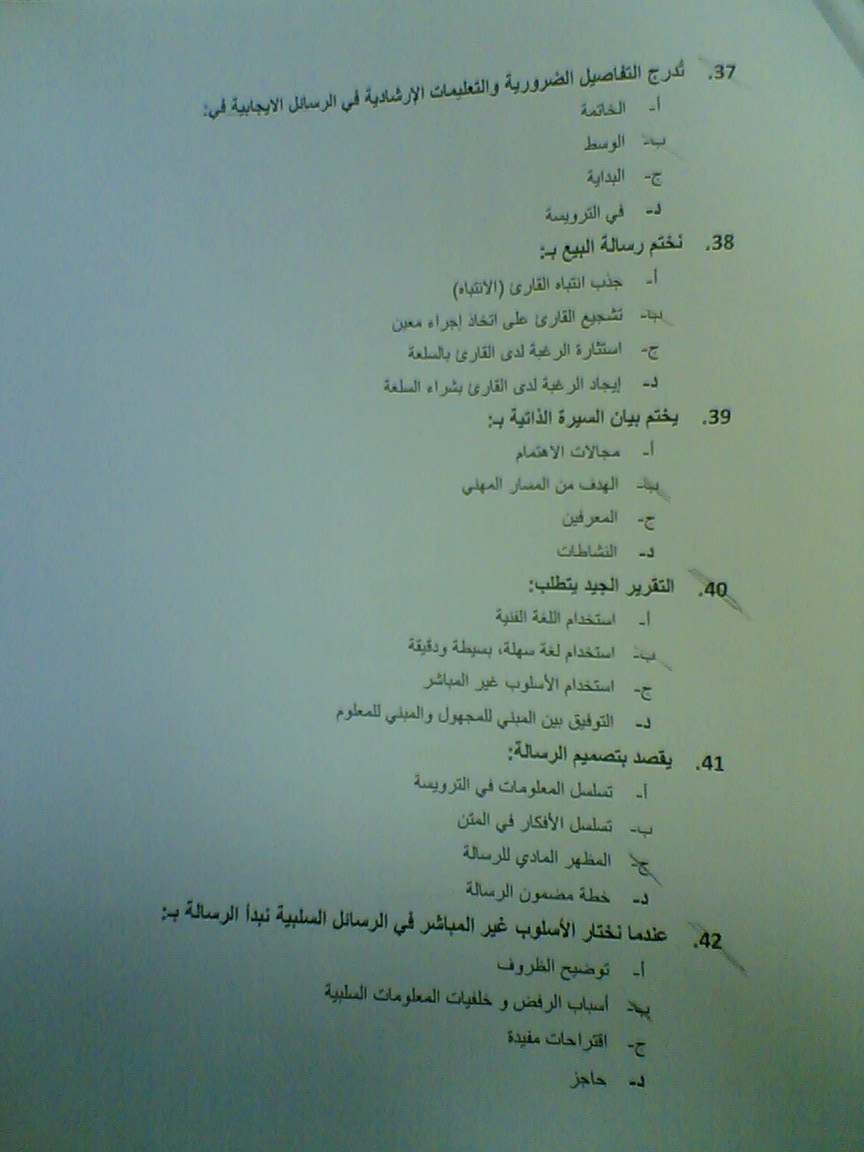 37. تُدرج التفاصيل الضرورية والتعليمات الإرشادية في الرسائل الايجابية في:
أ- الخاتمة
ب- الوسط
ج- البداية
د- في الترويسة
38. نختم رسالة البيع بـ:
أ- جذب انتباه القارئ (الانتباه)
ب- تشجيع القارئ على اتخاذ إجراء معين
ج- استثارة الرغبة لدى القارئ بالسلعة
د- إيجاد الرغبة لدى القارئ بشراء السلعة
39. يختم بيان السيرة الذاتية بـ:
أ- مجالات الاهتمام
ب- الهدف من المسار المهني
ج- المعرفين
د- النشاطات
40. التقرير الجيد يتطلب:
أ- استخدام اللغة الفنية
ب- استخدام لغة سهلة، بسيطة ودقيقة
ج- استخدام الأسلوب غير المباشر
د- التوفيق بين المبني للمجهول والمبني للمعلوم
41. يقصد بتصميم الرسالة:
أ- تسلسل المعلومات في الترويسة
ب- تسلسل الأفكار في المتن
ج- المظهر المادي للرسالة
د- خطة مضمون الرسالة
42. عندما نختار الأسلوب غير المباشر في الرسائل السلبية نبدأ الرسالة بـ:
أ- توضيح الظروف
ب- أسباب الرفض و خلفيات المعلومات السلبية
ج- اقتراحات مفيدة
د- حاجز